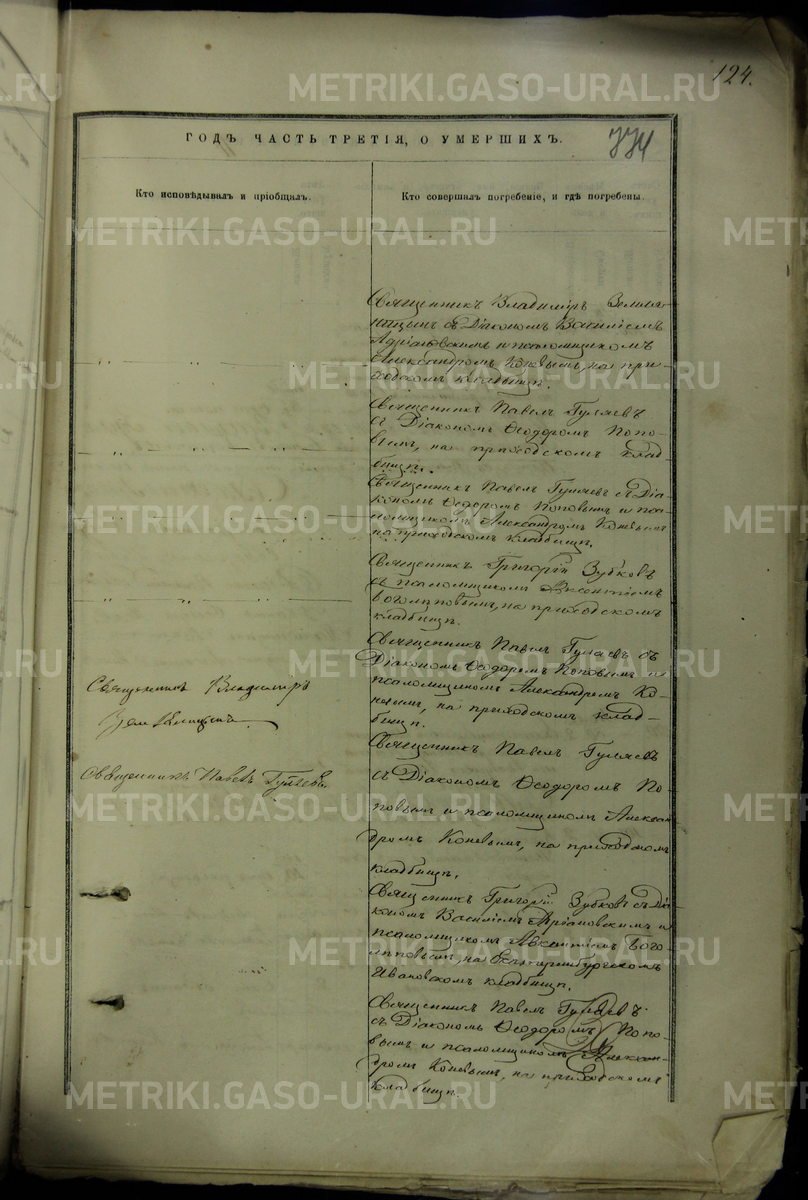 124.
774
ГОДЪ ЧАСТЬ ТРЕТІЯ, О УМЕРШИХЪ.
Кто исповѣдывалъ и пріобщалъ.
Кто совершалъ погребеніе, и гдѣ погребены.
Священникъ Владиміръ
съ Діакономъ Василіемъ
Адріановскимъ и псаломщикомъ
Александромъ Коневымъ, на при-
ходскомъ кладбищѣ.
Священникъ Павелъ Гуляевъ
съ Діакономъ Ѳеодоромъ Попо-
вымъ, на приходскомъ клад-
бищѣ.
Священникъ Павелъ Гуляевъ съ Діа-
кономъ Ѳеодоромъ Поповымъ и пса-
ломщикомъ Александромъ Коневымъ
на приходскомъ кладбищѣ.
Священникъ Григорій Зубковъ
съ псаломщикомъ Авксентіемъ
Боголѣповымъ, на приходскомъ
кладбищѣ.
Священникъ Павелъ Гуляевъ съ
Діакономъ Ѳеодоромъ Поповымъ и
псаломщикомъ Александромъ Ко-
невымъ, на приходскомъ клад-
бищѣ.
Священникъ Владиміръ
Священникъ Павелъ Гуляевъ
съ Діакономъ Ѳеодоромъ По-
повымъ и псаломщикомъ Алексан-
дромъ Коневымъ, на приходскомъ
кладбищѣ.
Священникъ Павелъ Гуляевъ.
Священникъ Григорій Зубковъ съ Діа-
кономъ Василіемъ Адріановскимъ и
псаломщикомъ Авксентіемъ Бого-
лѣповымъ, на Екатеринбургскомъ
Ивановскомъ кладбищѣ.
Священникъ Павелъ Гуляевъ
съ Діакономъ Ѳеодоромъ Попо-
вымъ и псаломщикомъ Алексан-
дромъ Коневымъ, на приходскомъ
кладбищѣ.
METRIKI.GASO-URAL.RU